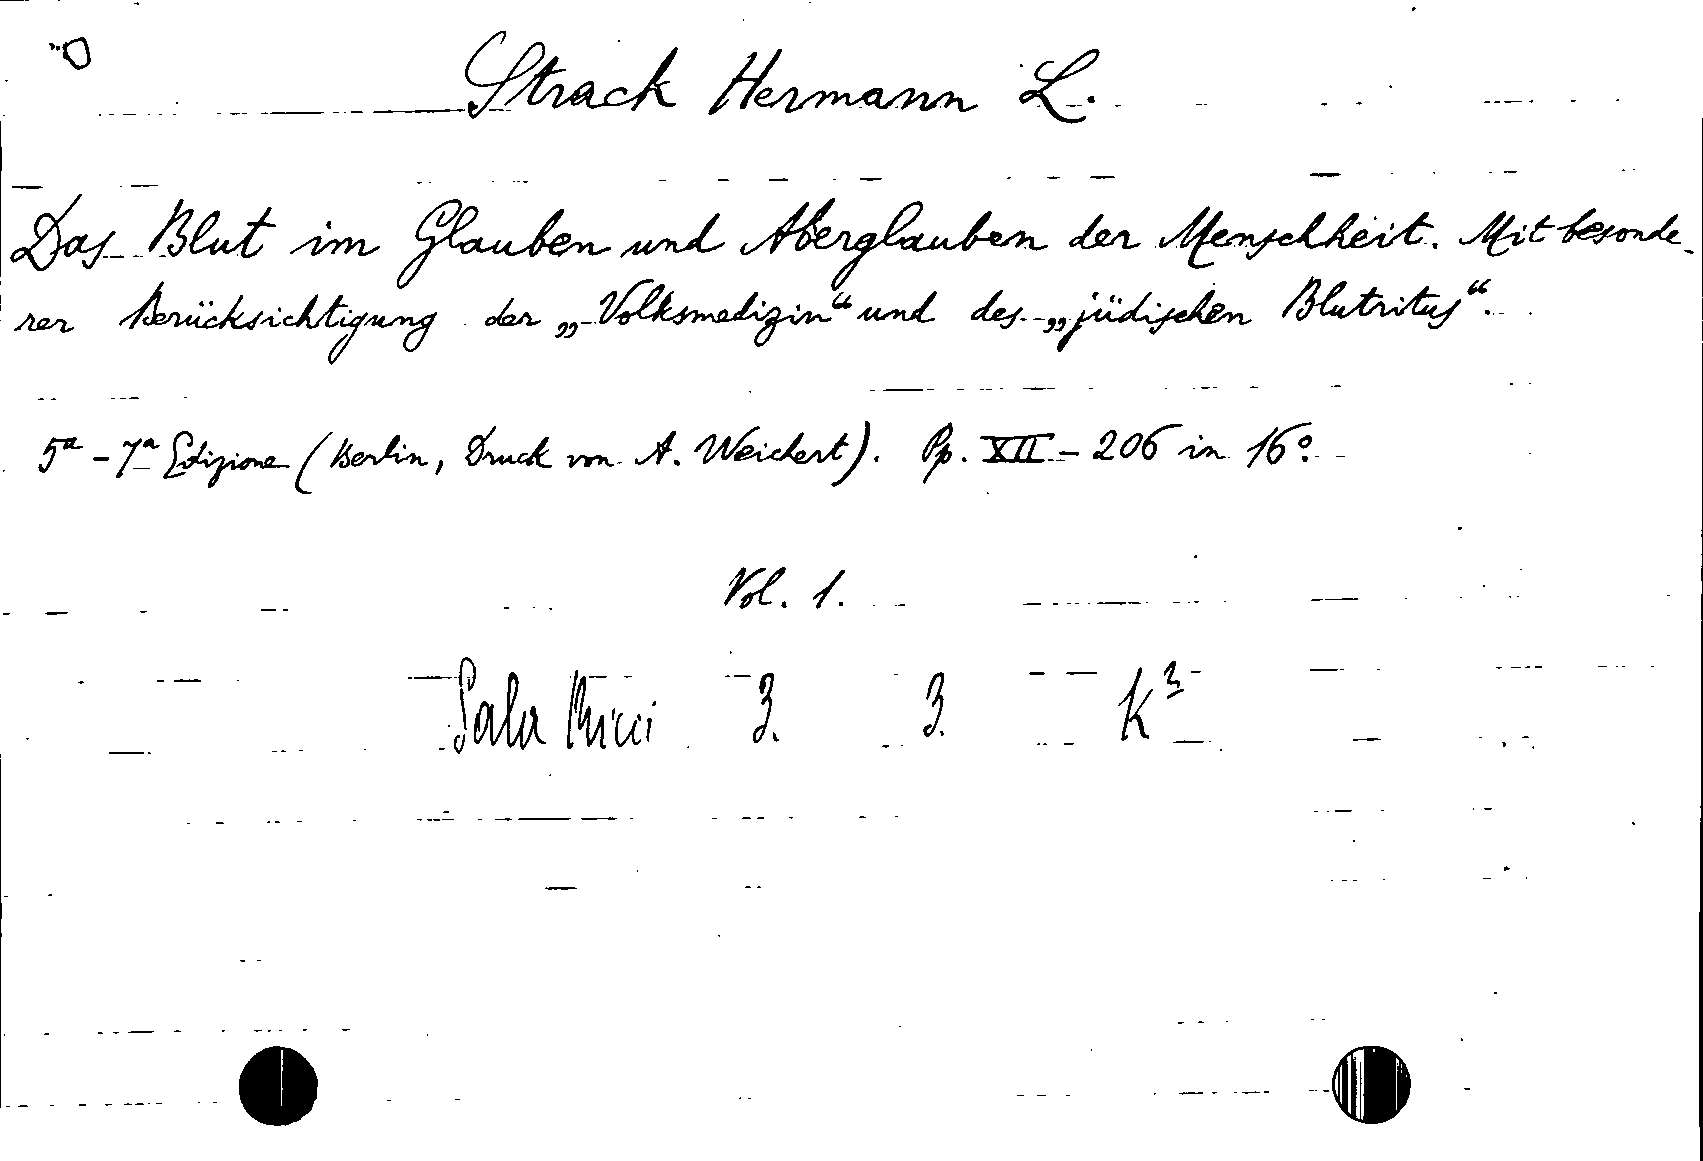 Strack Hermann L.
Das Blut im Glauben und Aberglauben der Menschheit. Mit besonde-
rer Berücksichtigung der „Volksmedizin“ und des „jüdischen Blutritus“.
5ª - 7ª Edizione (Berlin, Druck von A. Weichert). Pp. XII - 206 in 16º.
Vol. 1.
Sala Ricci 3. 3. K³